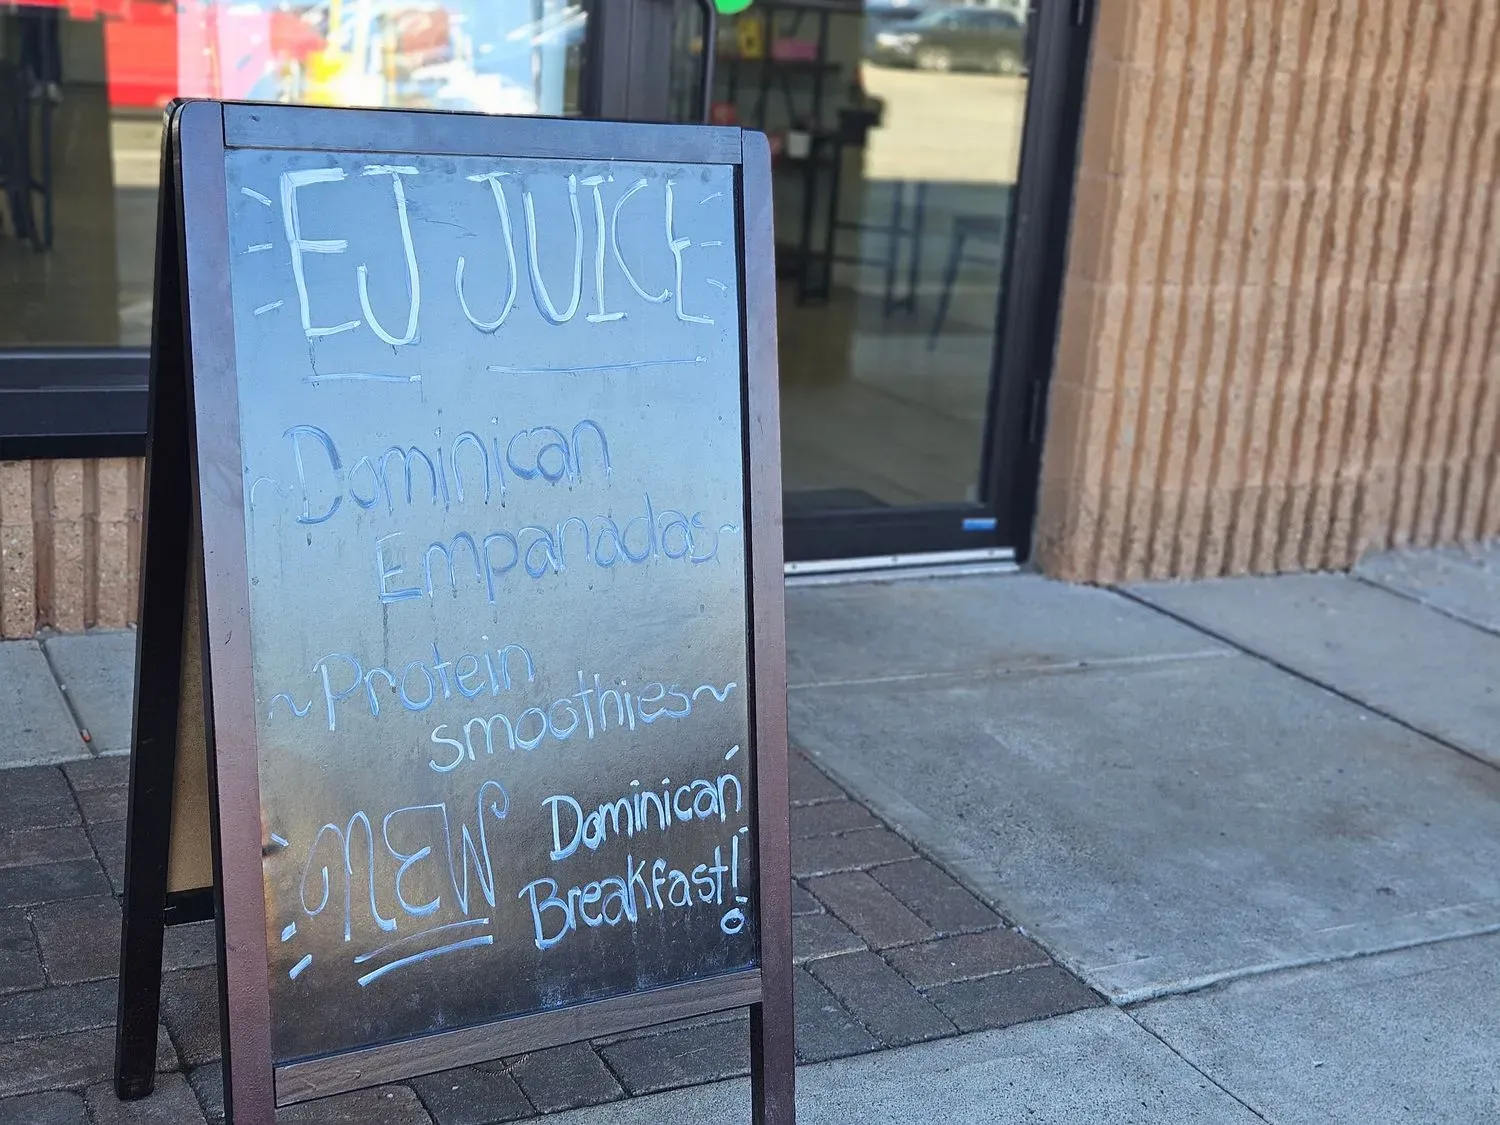 EJ JUICE
~Dominican
Empanadas~
~Protein
smoothies~
NEW Dominican
Breakfast!